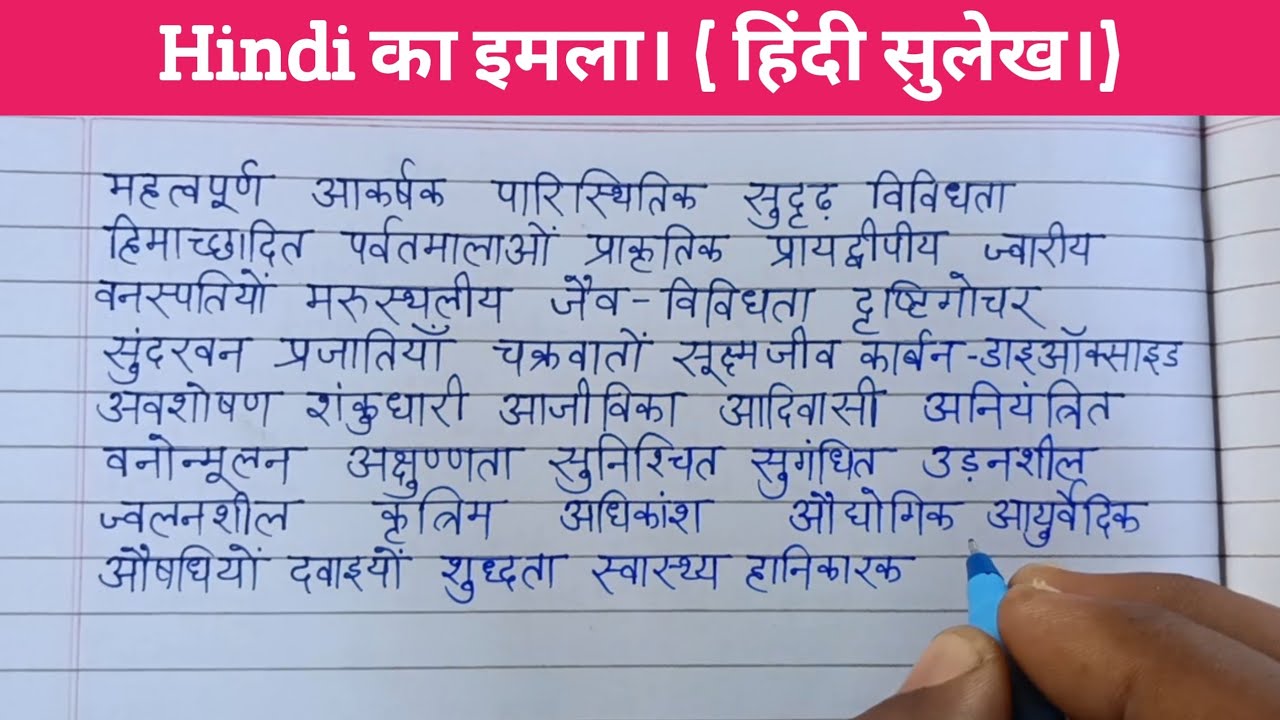 Hindi का इमला। ( हिंदी सुलेख।)
महत्वपूर्ण आकर्षक पारिस्थितिक सुदृढ़ विविधता
हिमाच्छादित पर्वतमालाओं प्राकृतिक प्रायद्वीपीय ज्वारीय
वनस्पतियों मरुस्थलीय जैव-विविधता दृष्टिगोचर
सुंदरवन प्रजातियाँ चक्रवातों सूक्ष्मजीव कार्बन-डाइऑक्साइड
अवशोषण शंकुधारी आजीविका आदिवासी अनियंत्रित
वनोन्मूलन अक्षुण्णता सुनिश्चित सुगंधित उड़नशील
ज्वलनशील कृत्रिम अधिकांश औद्योगिक आयुर्वेदिक
औषधियों दवाइयों शुद्धता स्वास्थ्य हानिकारक